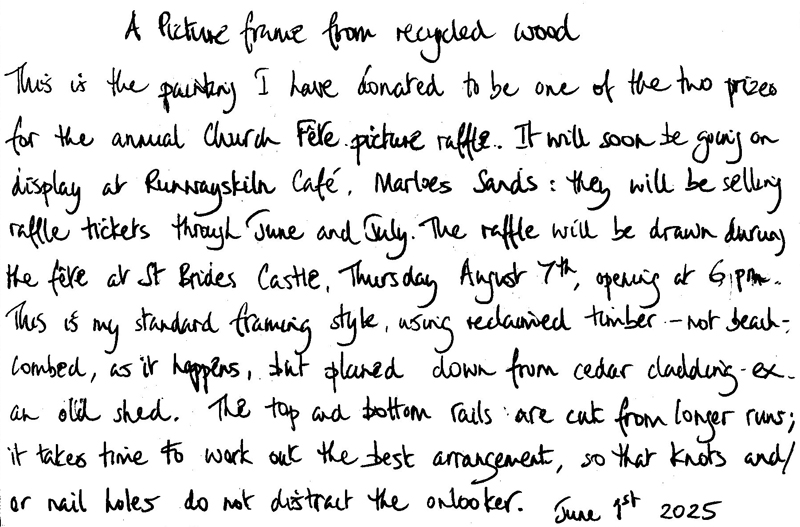 A Picture frame from recycled wood
This is the painting I have donated to be one of the two prizes
for the annual Church Fête picture raffle. It will soon be going on
display at Runwayskiln Café, Marloes Sands: they will be selling
raffle tickets through June and July. The raffle will be drawn during
the fête at St Brides Castle, Thursday August 7th, opening at 6 pm.
This is my standard framing style, using reclaimed timber – not beach-
combed, as it happens, but planed down from cedar cladding ex-
an old shed. The top and bottom rails are cut from longer runs;
it takes time to work out the best arrangement, so that knots and/
or nail holes do not distract the onlooker. June 1st 2025